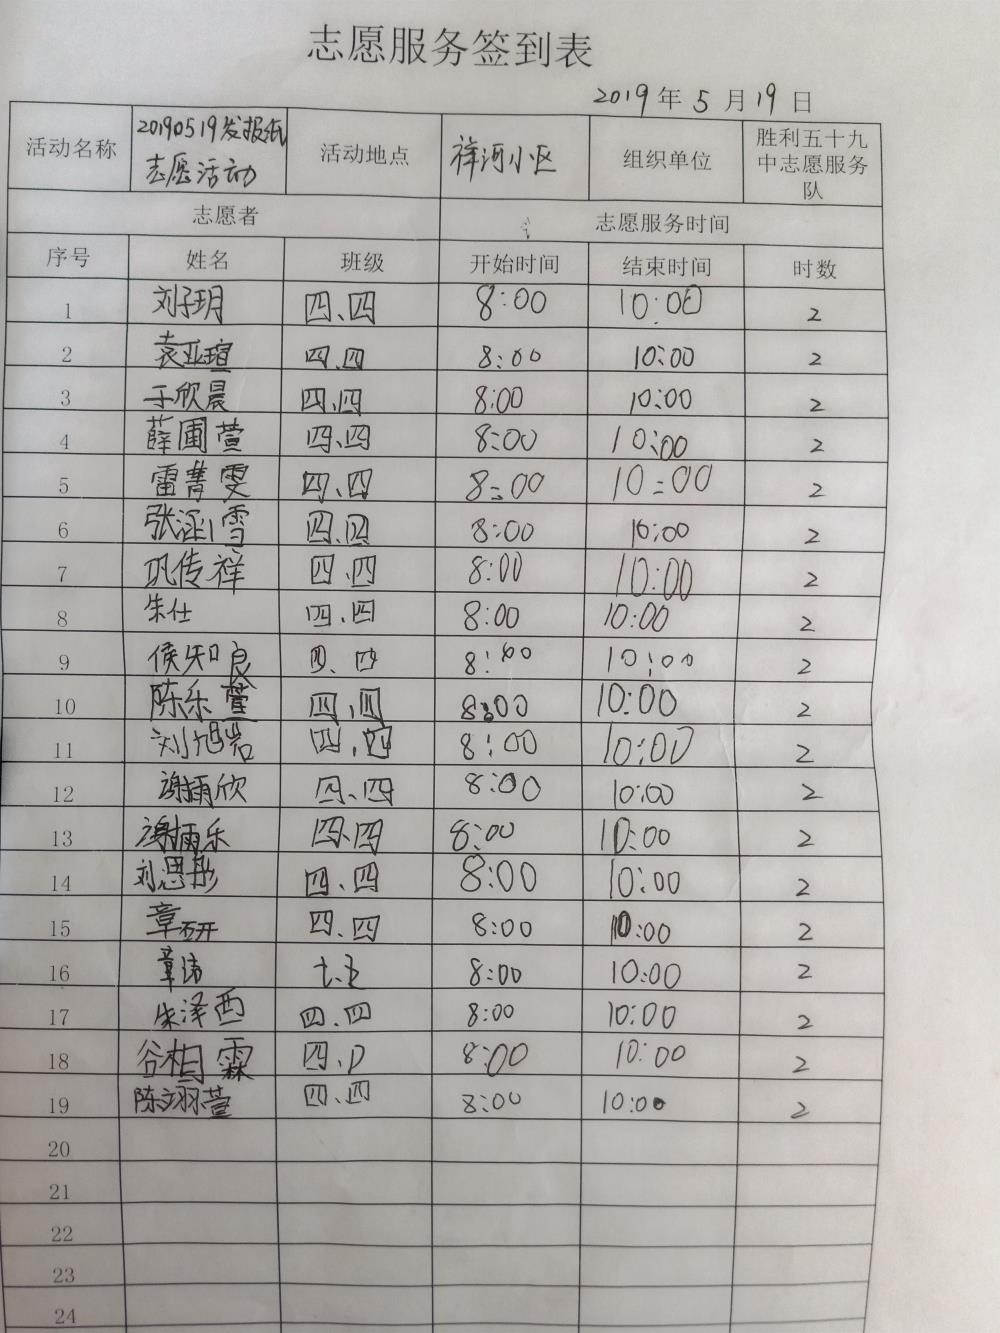 志愿服务签到表
2019年5月19日
活动名称 20190519发报纸志愿活动 活动地点 祥河小区 组织单位 胜利五十九中志愿服务队
志愿者 志愿服务时间
序号 姓名 班级 开始时间 结束时间 时数
1 刘子玥 四、四 8:00 10:00 2
2 袁亚瑄 四.四 8:00 10:00 2
3 于欣晨 四.四 8:00 10:00 2
4 薛圃萱 四.四 8:00 10:00 2
5 雷菁雯 四.四 8:00 10:00 2
6 张涵雪 四.四 8:00 10:00 2
7 巩传祥 四.四 8:00 10:00 2
8 朱仕 四.四 8:00 10:00 2
9 侯知良 四.四 8:00 10:00 2
10 陈乐萱 四.四 8:00 10:00 2
11 刘旭岩 四.四 8:00 10:00 2
12 谢雨欣 四、四 8:00 10:00 2
13 谢雨乐 四.四 8:00 10:00 2
14 刘思彤 四.四 8:00 10:00 2
15 章研 四.四 8:00 10:00 2
16 章涛 8:00 10:00 2
17 朱泽西 四.四 8:00 10:00 2
18 谷相霖 四. 8:00 10:00 2
19 陈翊萱 四.四 8:00 10:00 2
20
21
22
23
24